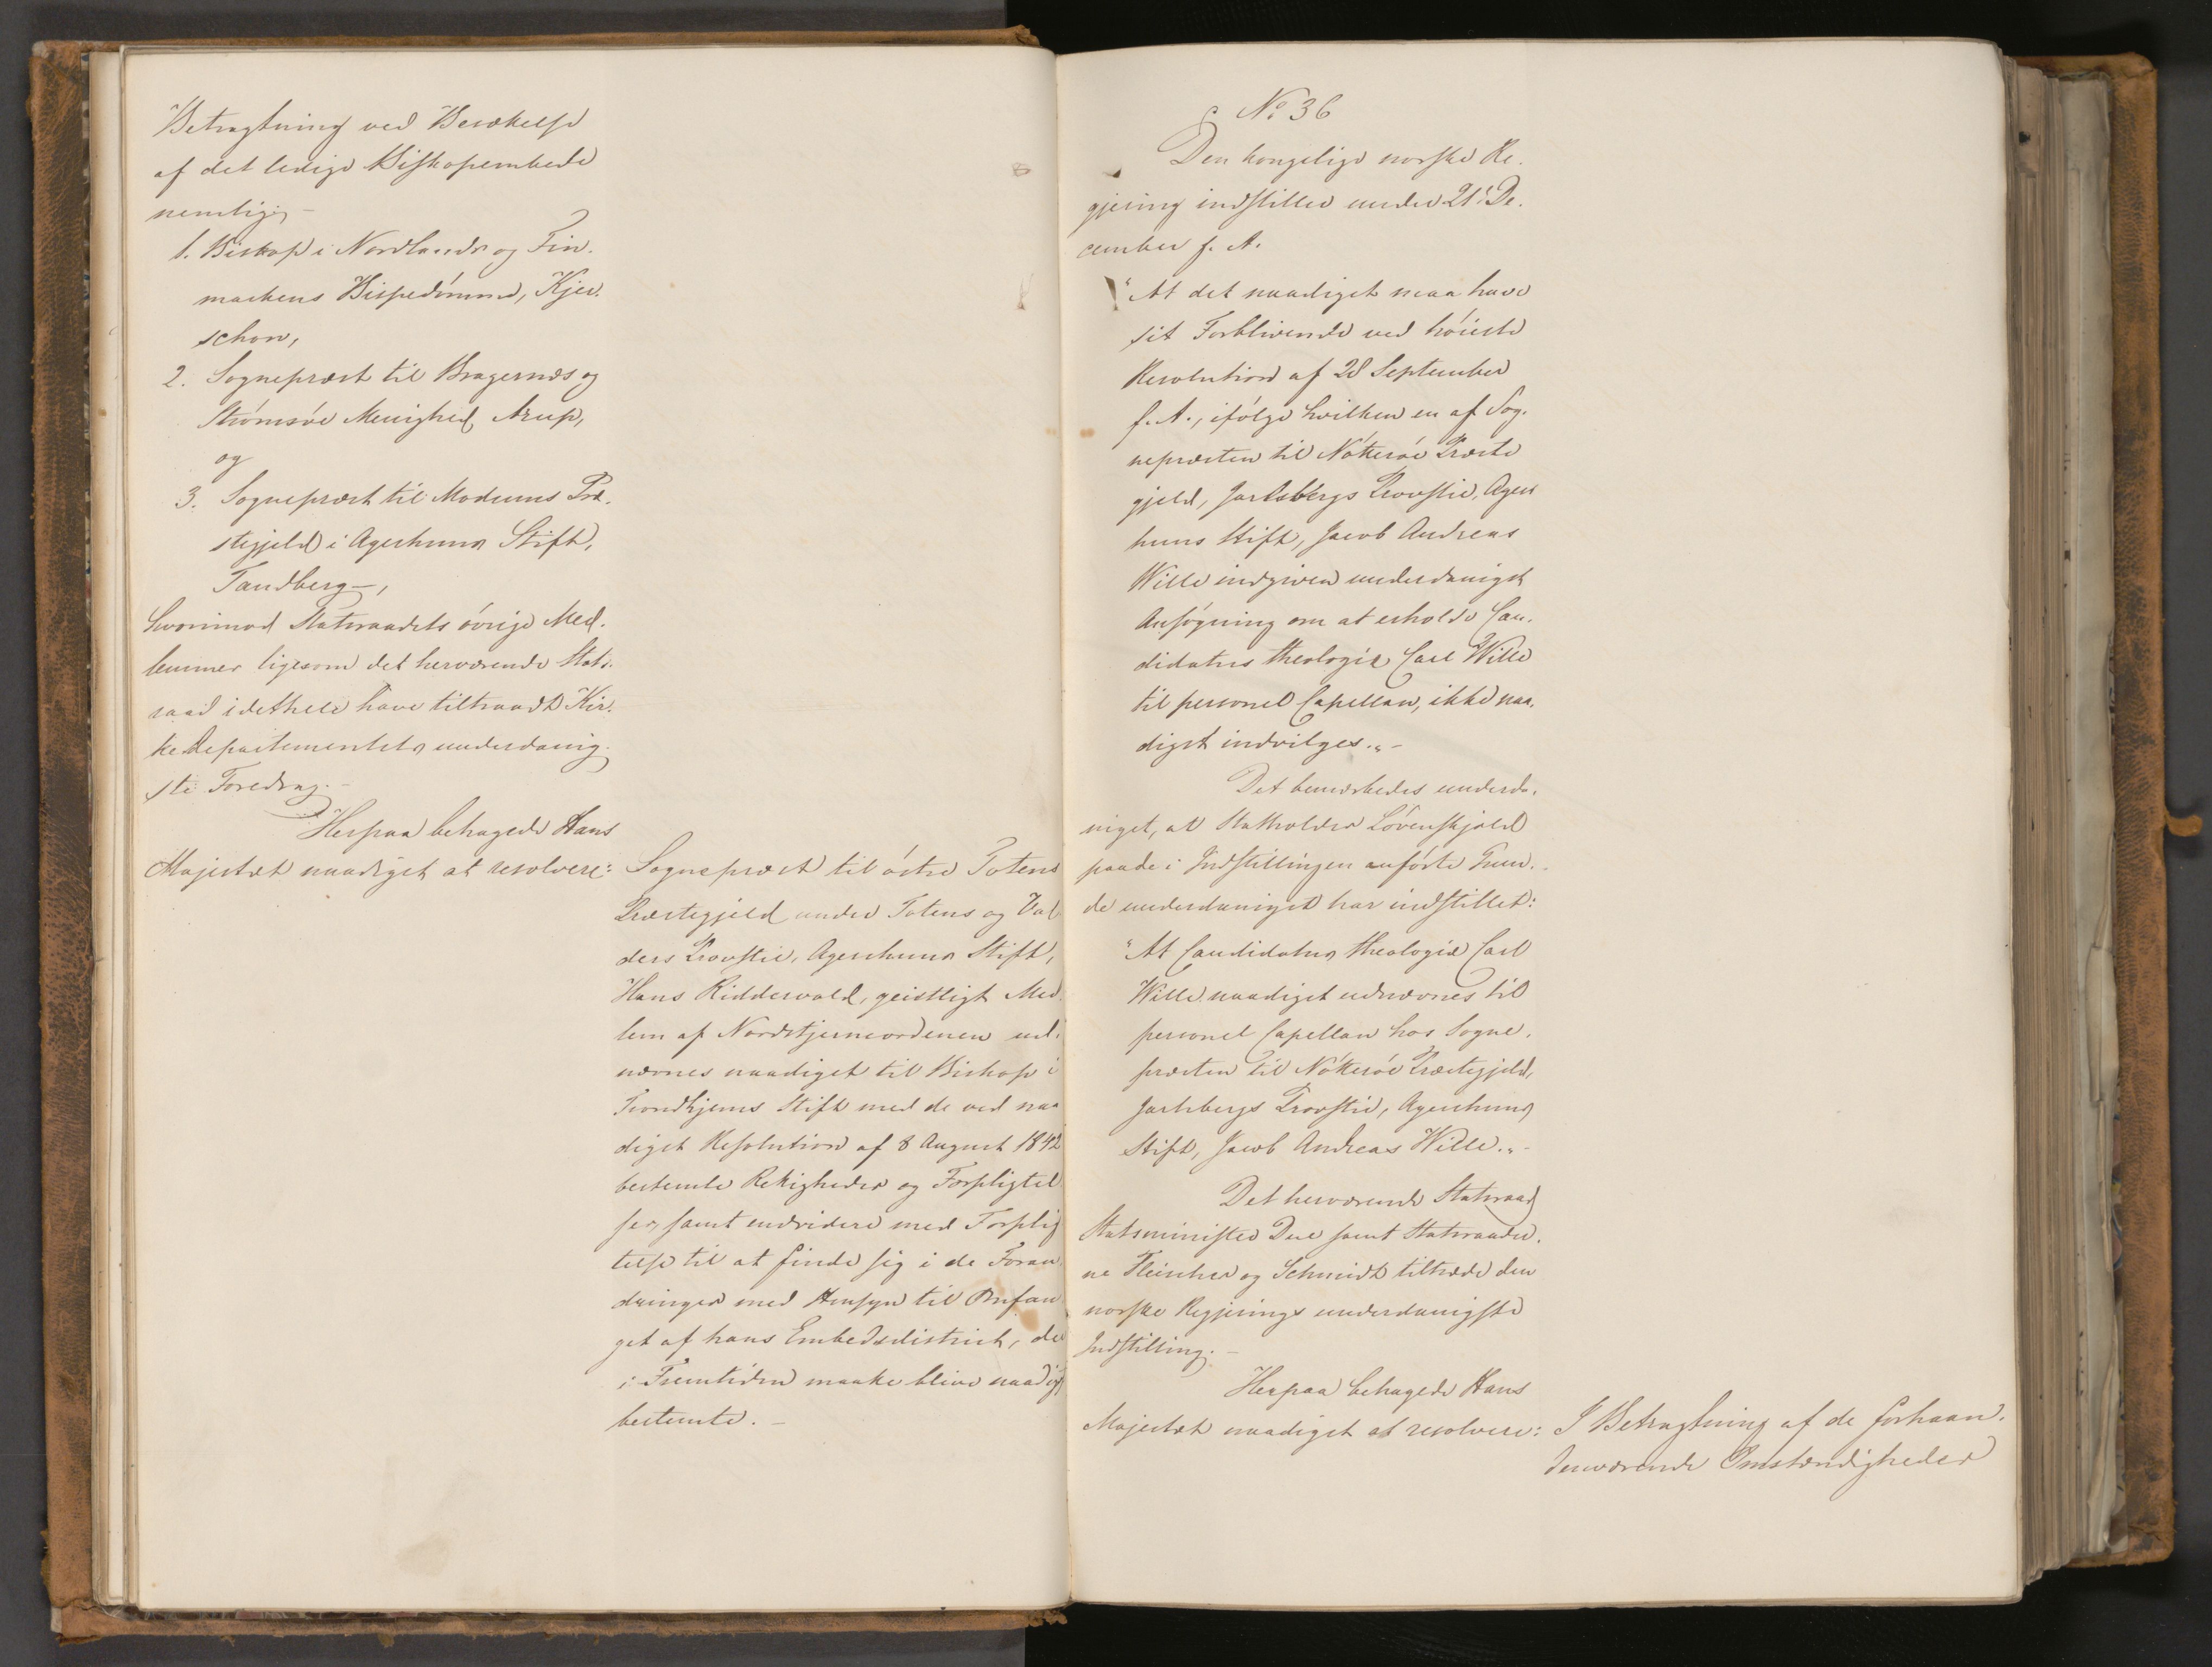 Betragtning ved Besættelse
af det ledige Biskopembede
nemlig;-
1. Biskop i Nordlands og Fin-
markens Bispedömme, Kjer-
schow,
2. Sognepræst til Bragernæs og
Strömsöe Menighed, Arup,
og
3. Sognepræst til Modums Præ-
stegjeld i Agershuus Stift,
Tandberg-,
hvorimod Statsraadets övrige Med-
lemmer ligesom det herværende Stats-
raad i det hele have tiltraadt Kir-
kedepartementets underdanig-
ste Foredrag.-
Herpaa behagede Hans
Majestæt naadigst at resolvere:
Sognepræst til östre Totens
Præstegjeld under Totens og Val-
ders Provstie, Agershuus Stift,
Hans Riddervold, geistligt Med-
lem af Nordstjerneordenen ud-
nævnes naadigst til Biskop i
Trondhjems Stift med de ved naa-
digst Resolution af 8 August 1842
bestemte Rettigheder og Forpligtel-
ser, samt endvidere med Forplig-
telse til at finde sig i de Foran-
dringer med Hensyn til Omfan-
get af hans Embedsdistrict, der
i Fremtiden maatte blive naadigst
bestemte.-
No 36
Den kongelige norske Re-
gjering indstiller under 21de De-
cember f. A.
"At det naadigst maa have
sit Forblivende ved höieste
Resolution af 28 September
f. A., ifölge hvilken en af Sog-
nepræsten til Nötteröe Præste
gjeld, Jarlsbergs Provstie, Agers
huus Stift, Jacob Andreas
Wille indgiven underdanigst
Ansögning om at erholde Can-
didatus theologiæ Carl Wille
til personel Capellan, ikke naa-
digst indvilges."-
Det bemærkedes underda-
nigst, at Statholder Lövenskjold
paa de i Indstillingen anförte Grun-
de underdanigst har indstillet:
"At Candidatus theologiæ Carl
Wille naadigst udnævnes til
personel Capellan hos Sogne-
præsten til Nötteröe Præstegjeld,
Jarlsbergs Provstie, Agershuus
Stift, Jacob Andreas Wille."-
Det herværende Statsraad
Statsminister Due samt Statsraader-
ne Fleischer og Schmidt tiltræde den
norske Regjerings underdanigste
Indstilling.-
Herpaa behagede Hans
Majestæt naadigst at resolvere:
I Betragtning af de forhaan-
denværende Omstændigheder